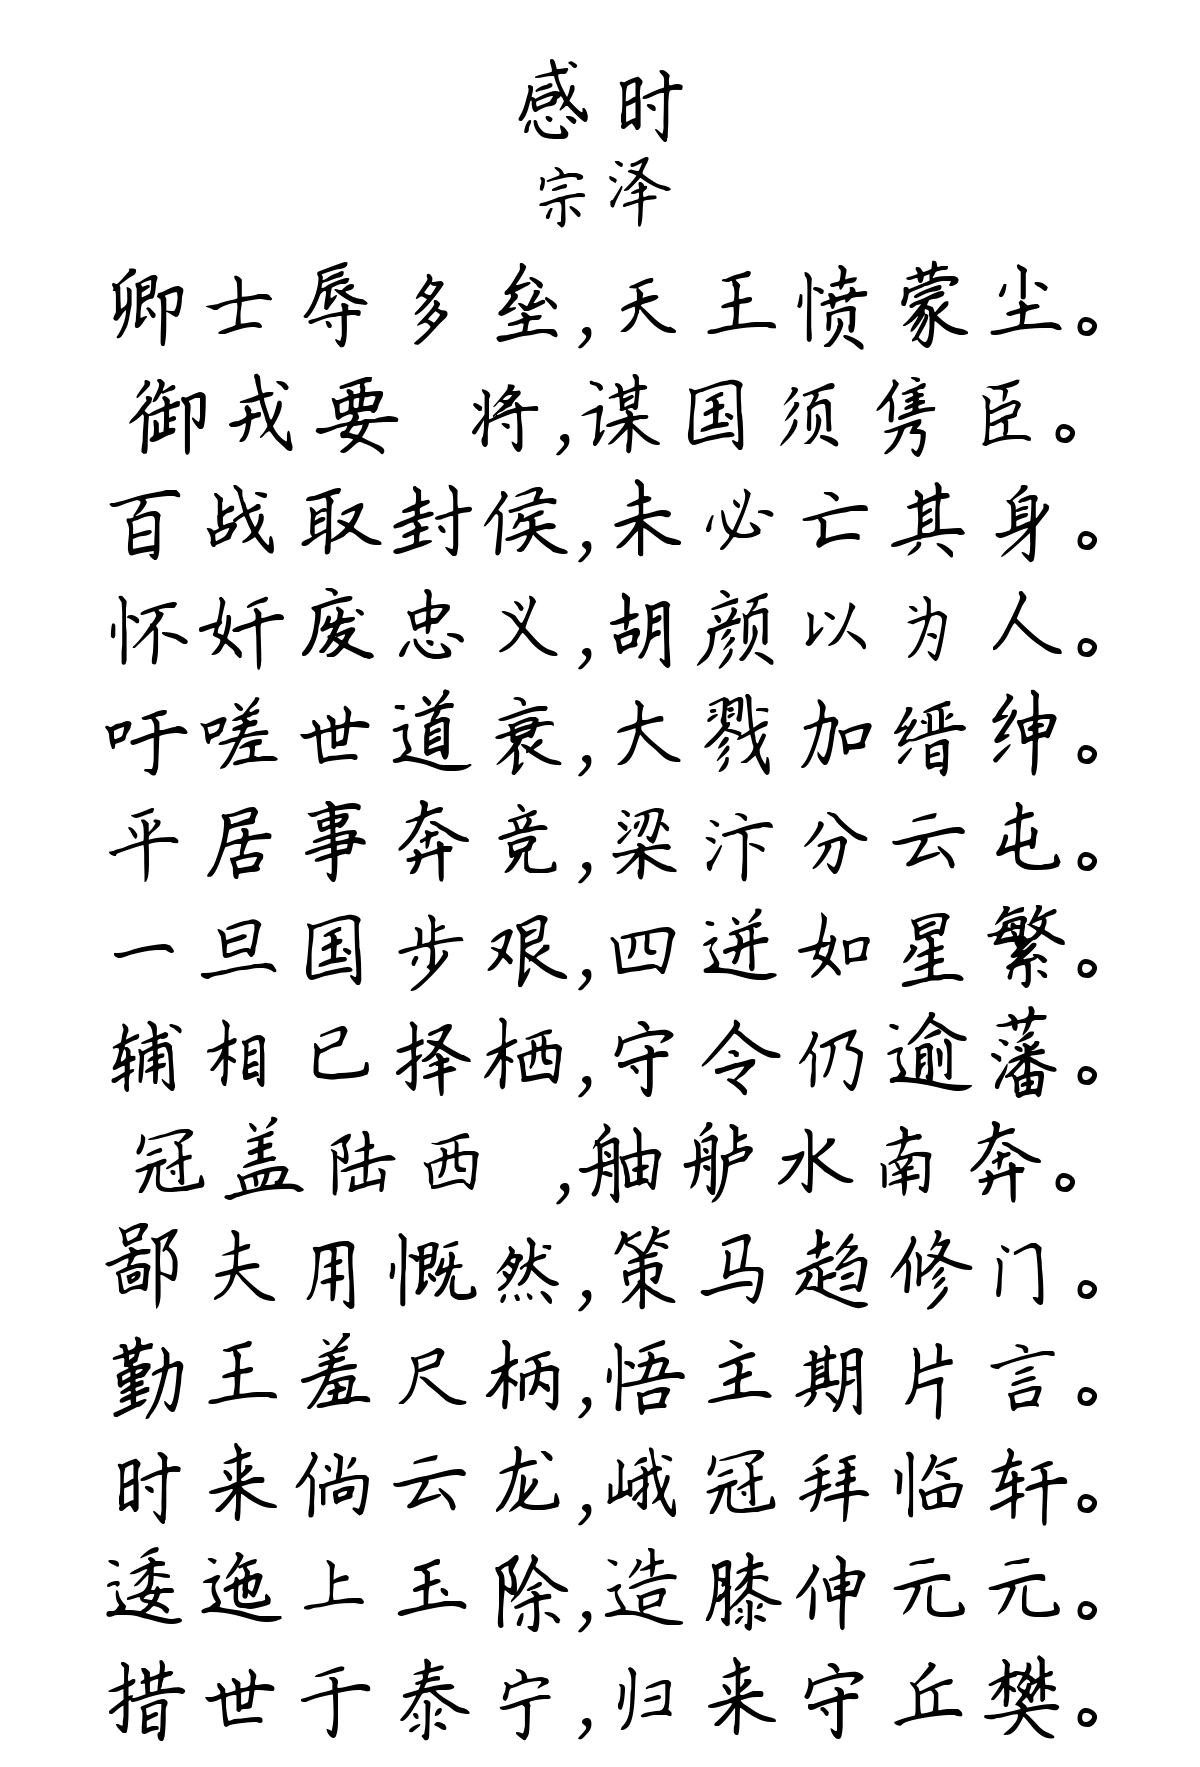 感时
宗泽
卿士辱多垒,天王愤蒙尘。
御戎要 将,谋国须隽臣。
百战取封侯,未必亡其身。
怀奸废忠义,胡颜以为人。
吁嗟世道衰,大戮加缙绅。
平居事奔竞,梁汴分云屯。
一旦国步艰,四迸如星繁。
辅相已择栖,守令仍逾藩。
冠盖陆西 ,舳舻水南奔。
鄙夫用慨然,策马趋修门。
勤王羞尺柄,悟主期片言。
时来倘云龙,峨冠拜临轩。
逶迤上玉除,造膝伸元元。
措世于泰宁,归来守丘樊。